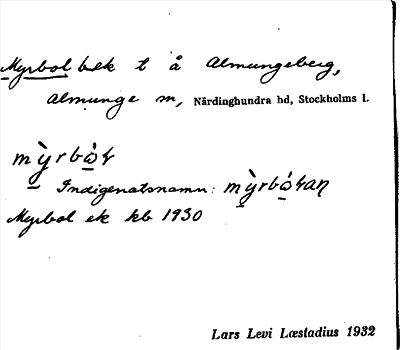 Myrbol bek t å Almungeberg,
Almunge sn, Närdinghundra hd, Stockholms l.
mỳrbó̱ɫ
Indigenatsnamn: mỳrbó̱ɫaṉ
Myrbol ek kb 1930
Lars Levi Læstadius 1932